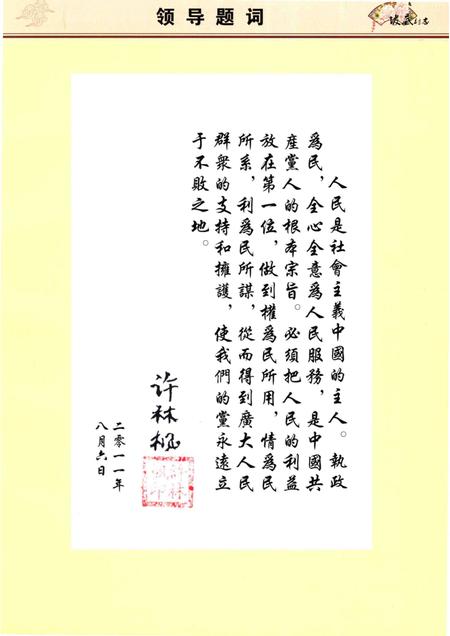 领导题词
人民是社會主義中國的主人。執政
爲民，全心全意爲人民服務，是中國共
産黨人的根本宗旨。必須把人民的利益
放在第一位，做到權爲民所用，情爲民
所系，利爲民所謀，從而得到廣大人民
群衆的支持和擁護，使我們的黨永遠立
于不敗之地。
许林枫
二零一一年
八月六日